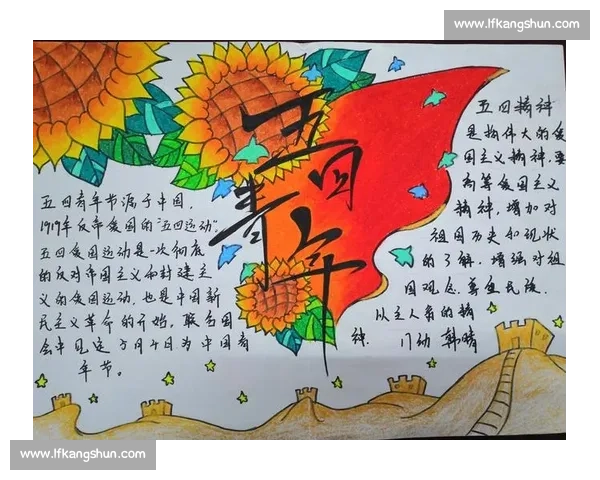 www.lfkangshun.com
五四青年
五四青年节源于中国,
1919年反帝爱国的"五四运动".
五四爱国运动是一次彻底
的反对帝国主义和封建主
义的爱国运动,也是中国新
民主义革命的开始,
月4日为中国青
年节。
五四精神
是伟大的爱
国主义精神,要
爱国主义
精神,增加对
祖国历史和现状
的了解,增强对祖
国观念.
以主人翁的精
神.
www.lfkangshun.com